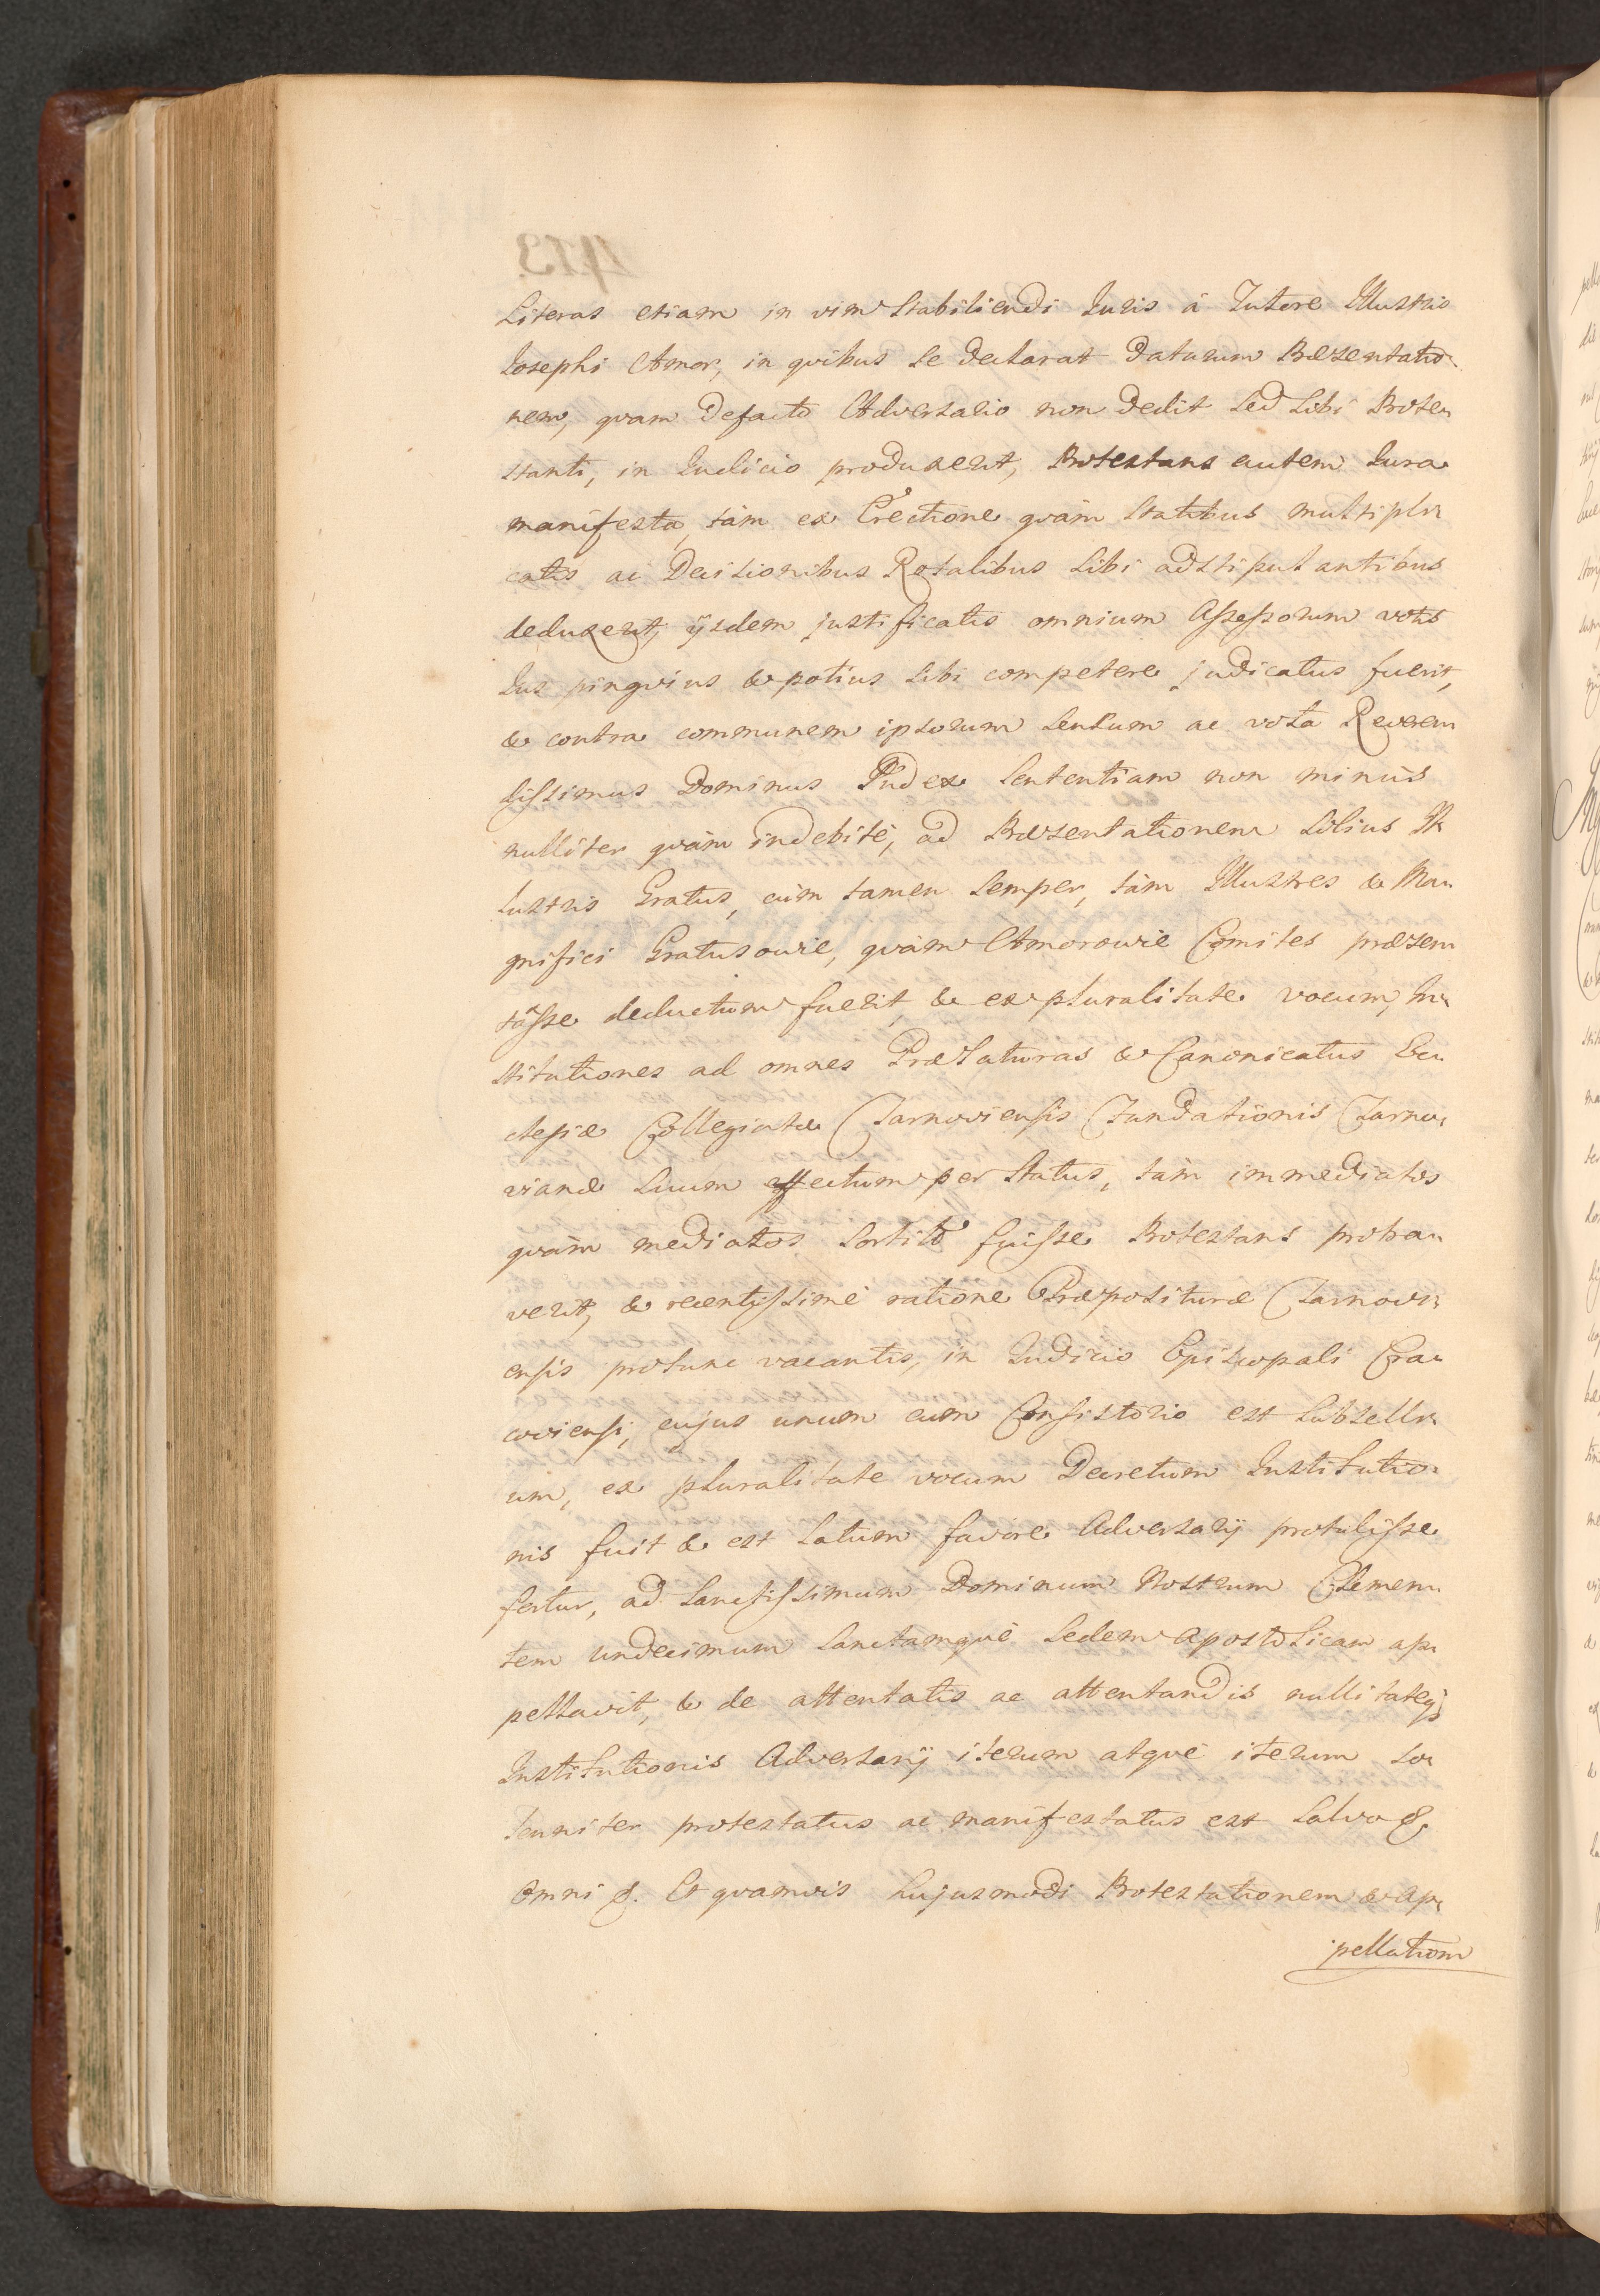 Literas etiam in vim stabiliendi Iuris à Tutore Illustris
Iosephi Amor, in qvibus se declarat daturum Præsentatio-
nem, qvam defacto Adversario non dedit sed sibi Prote-
stanti, in Iudicio produxerit, Protestans autem Iura
manifesta, tàm ex Erectione qvàm statibus multipli-
catis ac Decisionibus Rotalibus sibi adstipulantibus
deduxerit, ijsdem justificatis omnium Assessorum votis
Ius pingvius & potius sibi competere judicatus fuerit,
& contra communem ipsorum sensum ac vota Reveren-
dissimus Dominus Iudex Sententiam non minùs
nulliter qvàm indebitè, ad Præsentationem solius Il-
lustris Gratus, cùm tamen semper, tàm Illustres & Ma-
gnifici Gratusowie, qvàm Amorowie Comites præsen-
tasse deductum fuerit, & ex pluralitate vocum, In-
stitutiones ad omnes Prælaturas & Canonicatus Ec-
clesiæ Collegiatæ Tarnoviensis Fundationis Tarno-
vianæ suum effectum per status, tàm immediatos
qvàm mediatos sortitò fuisse Protestans proba-
verit, & recentissimè ratione Præposituræ Tarnovi-
ensis protunc vacantis, in Iudicio Episcopali Cra-
coviensi, cujus unum cum Consistorio est subselli-
um, ex pluralitate vocum Decretum Institutio-
nis fuit & est latum favore Adversarij protulisse
fertur, ad Sanctissimum Dominum Nostrum Clemen-
tem undecimum Sanctamqvè Sedem Apostolicam ap-
pellavit, & de attentatis ac attentandis nullitateq;
Institutionis Adversarij iterum atqvè iterum so-
lenniter protestatus ac manifestatus est salvo &.
omni &. Et qvamvis hujusmodi Protestationem & Ap-
pellationem